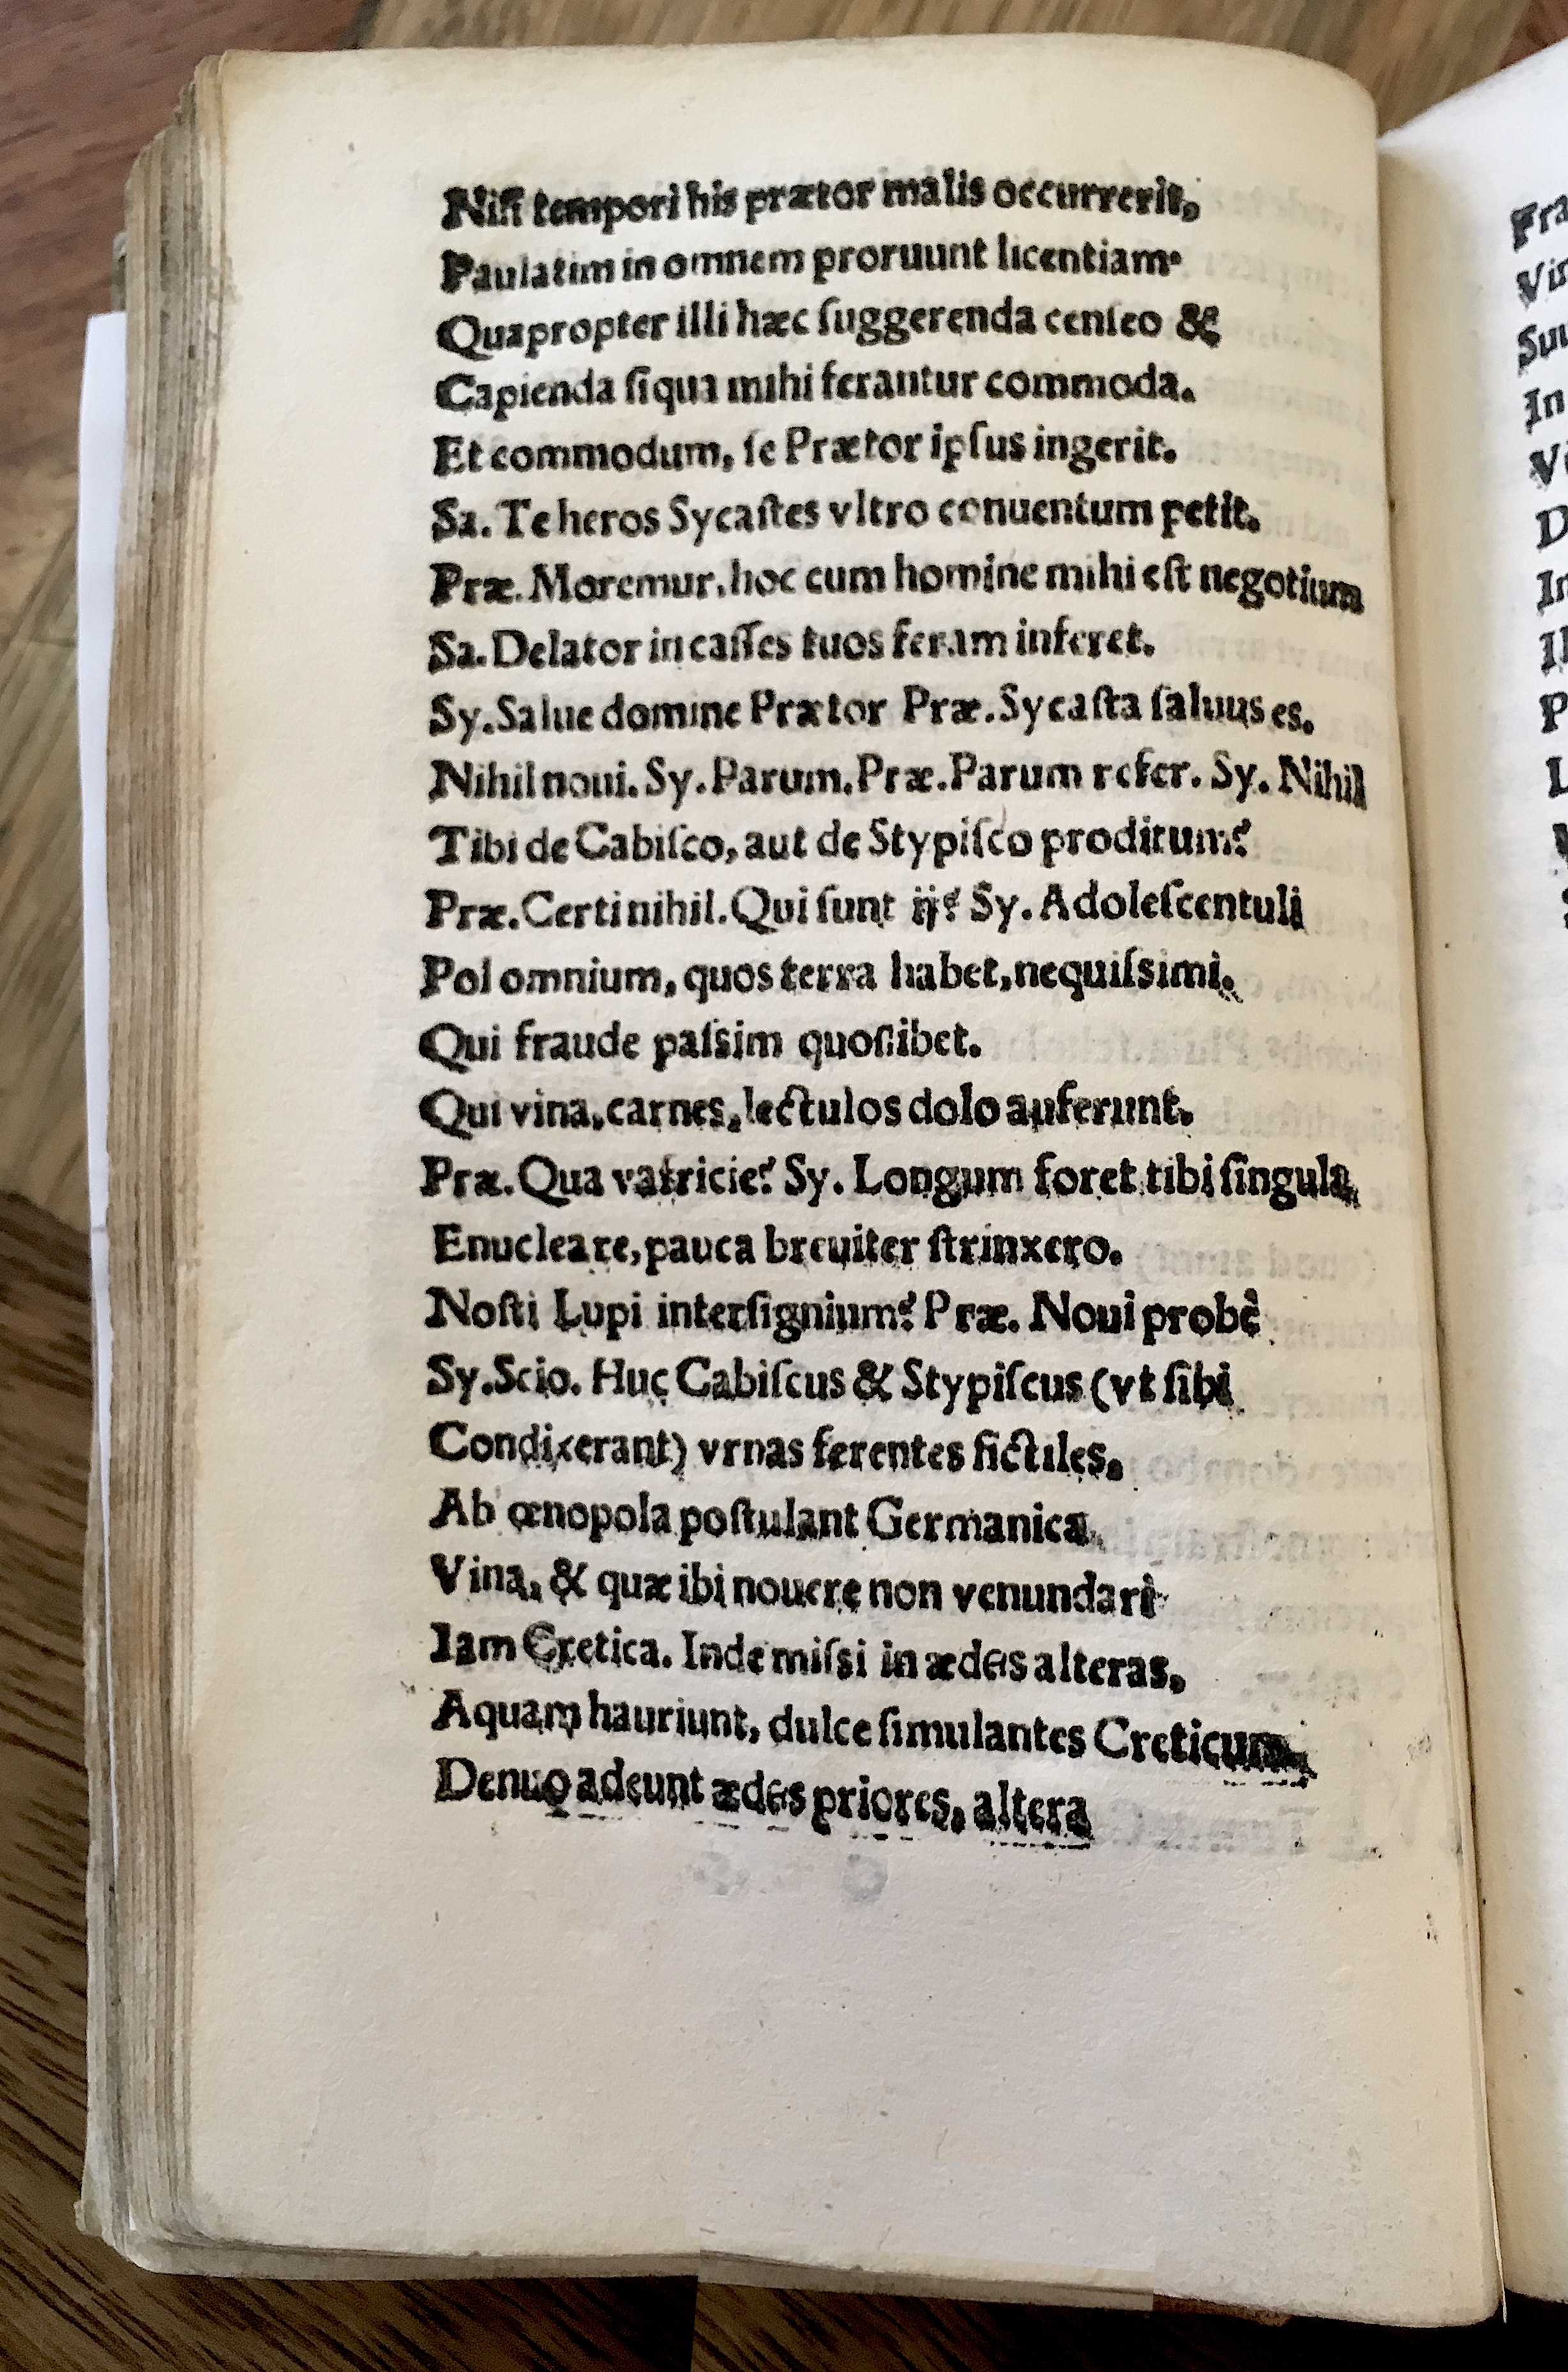 Niſi tempori his prætor malis occurrerit,
Paulatim in omnem proruunt licentiam.
Quapropter illi hæc ſuggerenda cenſeo &
Capienda ſiqua mihi ferantur commoda.
Et commodum, ſe Prætor ipſus ingerit.
Sa. Te heros Sycaſtes vltro conuentum petit.
Præ. Moremur, hoc cum homine mihi eſt negotium
Sa. Delator in caſſes tuos feram inferet.
Sy. Salue domine Prætor Præ. Sycaſta ſaluus es.
Nihil noui. Sy. Parum. Præ. Parum refer. Sy. Nihil
Tibi de Cabiſco, aut de Stypiſco proditum?
Præ. Certi nihil. Qui ſunt ij? Sy. Adoleſcentuli
Pol omnium, quos terra habet, nequiſsimi.
Qui fraude paſsim quoſlibet.
Qui vina, carnes, lectulos dolo auferunt.
Præ. Qua vafricie? Sy. Longum foret tibi ſingula
Enucleare, pauca breuiter ſtrinxero.
Noſti Lupi interſignium? Præ. Noui probè
Sy. Scio. Huc Cabiſcus & Stypiſcus (vt ſibi
Condixerant) vrnas ferentes fictiles,
Ab œnopola poſtulant Germanica
Vina, & quæ ibi nouere non venundari
Iam Cretica. Inde miſsi in ædes alteras,
Aquam hauriunt, dulce ſimulantes Creticum
Denuo adeunt ædes priores, altera
Fra
In